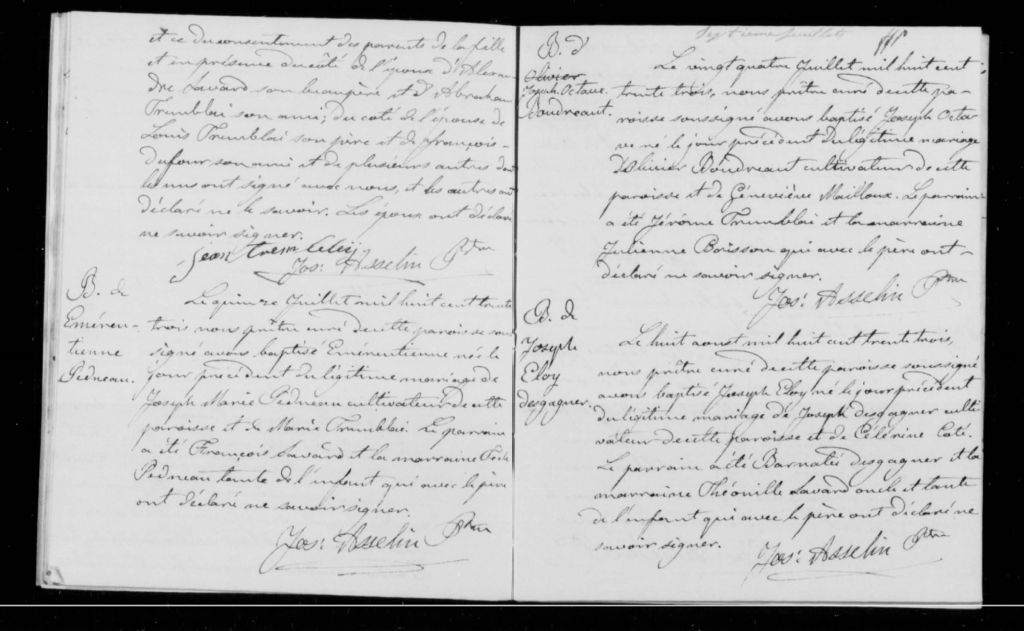 et ce du consentement des parents de la fille
et en présence du côté de l'époux d'Alexan-
dre Savard son beaupère et d'Abraham
Tremblai son ami; du coté de l'épouse de
Louis Tremblai son père et de françois
Dufour son ami et de plusieurs autres dont
les uns ont signé avec nous, et les autres ont
déclaré ne le savoir. Les époux ont déclaré
ne savoir signer.
Jean
Jos: Asselin Ptre
B. de
Eméren-
tienne
Pedneau.
Le quinze Juillet mil huit cent trente
trois nous prêtre curé de cette paroisse sous
signé avons baptisé Emérentienne née le
jour précédent du légitime mariage de
Joseph Marie Pedneau cultivateur de cette
paroisse et de Marie Tremblai. Le parrain
a été François Savard et la marraine
Pedneau tante de l'enfant qui avec le père
ont déclaré ne savoir signer.
Jos: Asselin Ptre
Septième feuillet
B. d'
Olivier
Joseph Octave
Boudreault.
Le vingt quatre Juillet mil huit cent
trente trois, nous prêtre curé de cette pa-
roisse soussigné avons baptisé Joseph Octa
ve né le jour précédent du légitime mariage
d'Olivier Boudreau cultivateur de cette
paroisse et de Géneviève Mailloux. Le parrain
a été Jérôme Tremblai et la marraine
Julienne Boisson qui avec le père ont
déclaré ne savoir signer.
Jos: Asselin Ptre
B. de
Joseph
Eloy
desgagner.
Le huit aoust mil huit cent trente trois,
nous prêtre curé de cette paroisse soussigné
avons baptisé Joseph Eloy né le jour précédent
du légitime mariage de Joseph desgagner culti
vateur de cette paroisse et de Célérine Coté.
Le parrain a été Barnabé desgagner et la
marraine Théotille Savard oncle et tante
de l'enfant qui avec le père ont déclaré ne
savoir signer.
Jos: Asselin Ptre